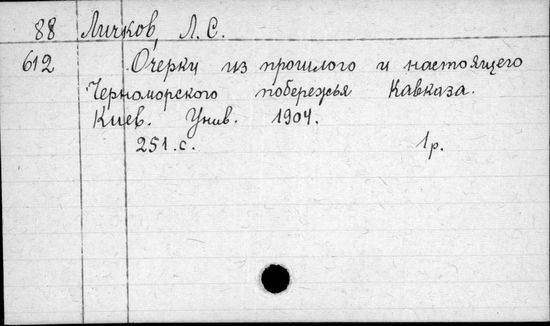 88 Личков, Л. С.
612 Очерки из прошлого и настоящего
Черноморского побережья Кавказа.
Киев. Унив. 1904.
251. с. 1р.